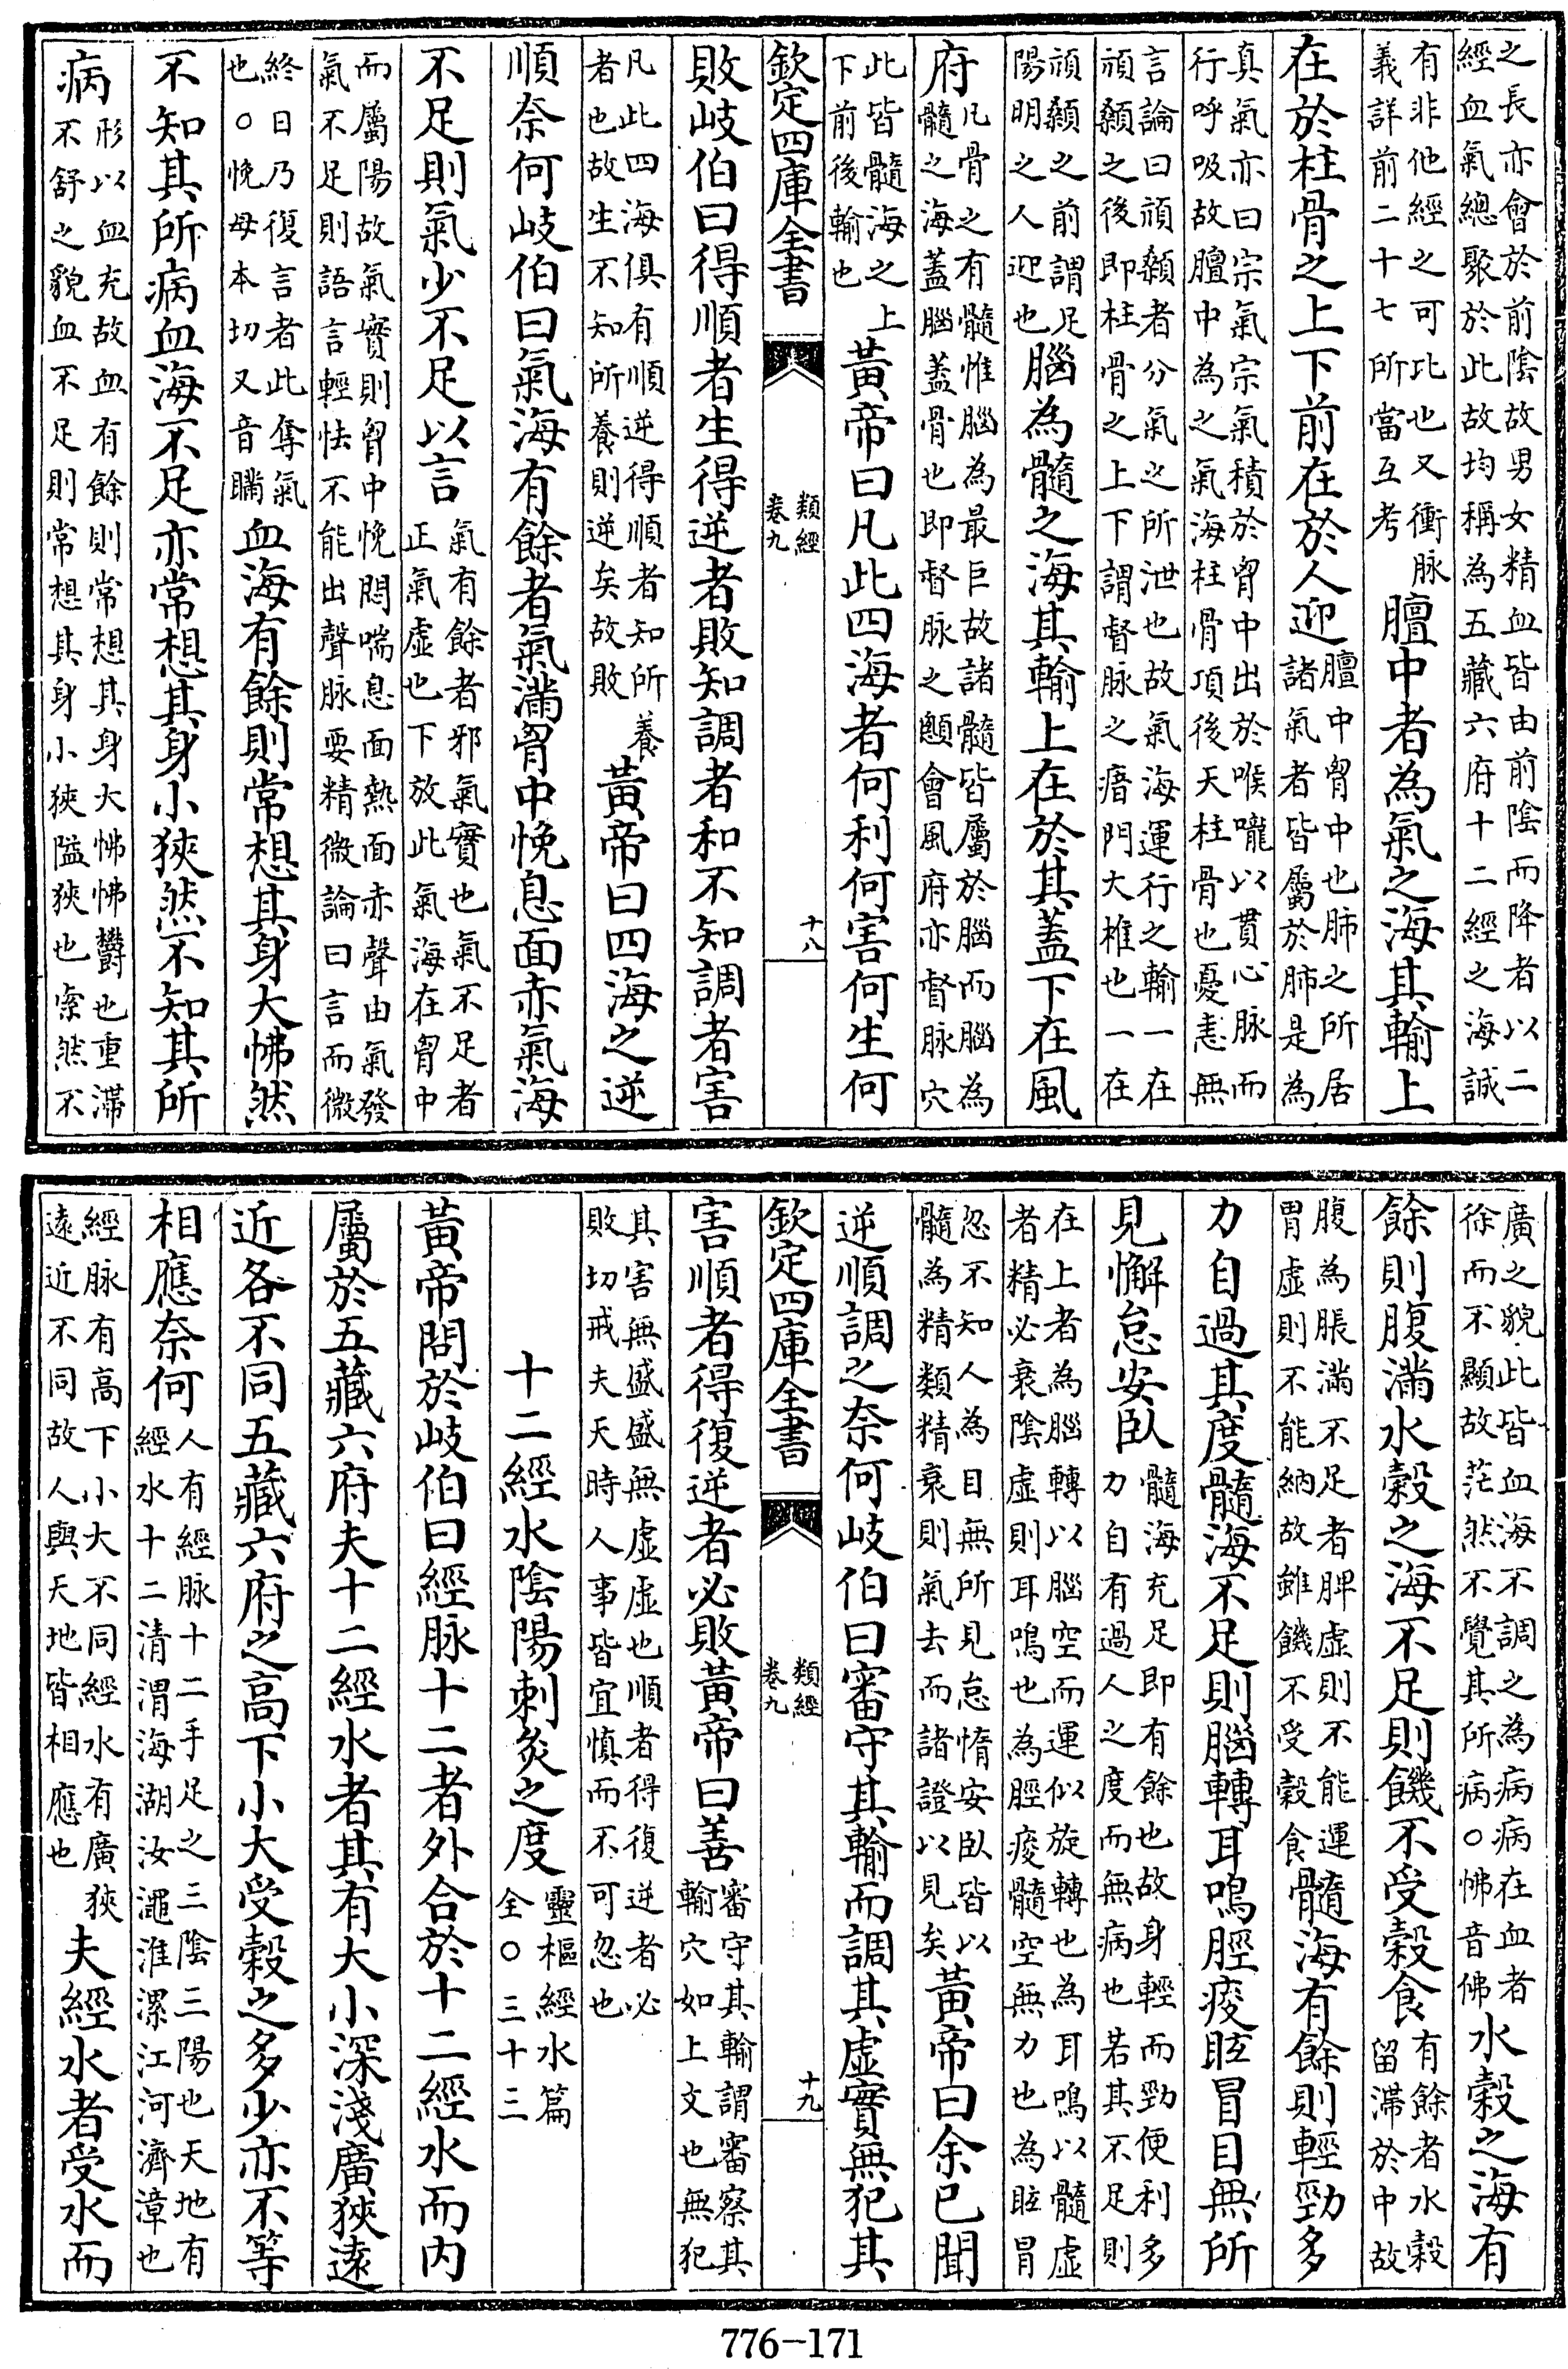 之長亦會於前陰故男女精血皆由前陰而降者以二
經血氣總聚於此故均稱為五藏六府十二經之海誠
有非他經之可比也又衝脉
義詳前二十七所當互考
膻中者為氣之海其輸上
在於柱骨之上下前在於人迎
膻中胷中也肺之所居
諸氣者皆屬於肺是為
真氣亦曰宗氣宗氣積於胷中出於喉嚨以貫心脉而
行呼吸故膻中為之氣海柱骨項後天柱骨也憂恚無
言論曰頏顙者分氣之所泄也故氣海運行之輸一在
頏顙之後即柱骨之上下謂督脉之瘖門大椎也一在
頏顙之前謂足
陽明之人迎也
腦為髓之海其輸上在於其蓋下在風
府
凡骨之有髓惟腦為最巨故諸髓皆屬於腦而腦為
髓之海蓋腦蓋骨也即督脉之顖會風府亦督脉穴
此皆髓海之上
下前後輸也
黃帝曰凡此四海者何利何害何生何
欽定四庫全書
類經
卷九
十八
敗岐伯曰得順者生得逆者敗知調者和不知調者害
凡此四海俱有順逆得順者知所養
者也故生不知所養則逆矣故敗
黃帝曰四海之逆
順奈何岐伯曰氣海有餘者氣滿胷中悗息面赤氣海
不足則氣少不足以言
氣有餘者邪氣實也氣不足者
正氣虛也下放此氣海在胷中
而屬陽故氣實則胷中悗悶喘息面熱面赤聲由氣發
氣不足則語言輕怯不能出聲脉要精微論曰言而微
終日乃復言者此奪氣
也○悗母本切又音瞞
血海有餘則常想其身大怫然
不知其所病血海不足亦常想其身小狹然不知其所
病
形以血充故血有餘則常想其身大怫怫鬱也重滯
不舒之貌血不足則常想其身小狹隘狹也索然不
廣之貌此皆血海不調之為病病在血者
徐而不顯故茫然不覺其所病○怫音佛
水穀之海有
餘則腹滿水穀之海不足則饑不受穀食
有餘者水穀
留滯於中故
腹為脹滿不足者脾虛則不能運
胃虛則不能納故雖饑不受穀食
髓海有餘則輕勁多
力自過其度髓海不足則腦轉耳鳴脛痠眩冒目無所
見懈怠安臥
髓海充足即有餘也故身輕而勁便利多
力自有過人之度而無病也若其不足則
在上者為腦轉以腦空而運似旋轉也為耳鳴以髓虛
者精必衰陰虛則耳鳴也為脛痠髓空無力也為眩冒
忽不知人為目無所見怠惰安臥皆以
髓為精類精衰則氣去而諸證以見矣
黃帝曰余已聞
逆順調之奈何岐伯曰審守其輸而調其虛實無犯其
欽定四庫全書
類經
卷九
十九
害順者得復逆者必敗黃帝曰善
審守其輸謂審察其
輸穴如上文也無犯
其害無盛盛無虛虛也順者得復逆者必
敗切戒夫天時人事皆宜慎而不可忽也
十二經水陰陽刺灸之度
靈樞經水篇
全○三十三
黃帝問於岐伯曰經脉十二者外合於十二經水而內
屬於五藏六府夫十二經水者其有大小深淺廣狹遠
近各不同五藏六府之高下小大受穀之多少亦不等
相應奈何
人有經脉十二手足之三陰三陽也天地有
經水十二清渭海湖汝澠淮漯江河濟漳也
經脉有高下小大不同經水有廣狹
遠近不同故人與天地皆相應也
夫經水者受水而
776-171